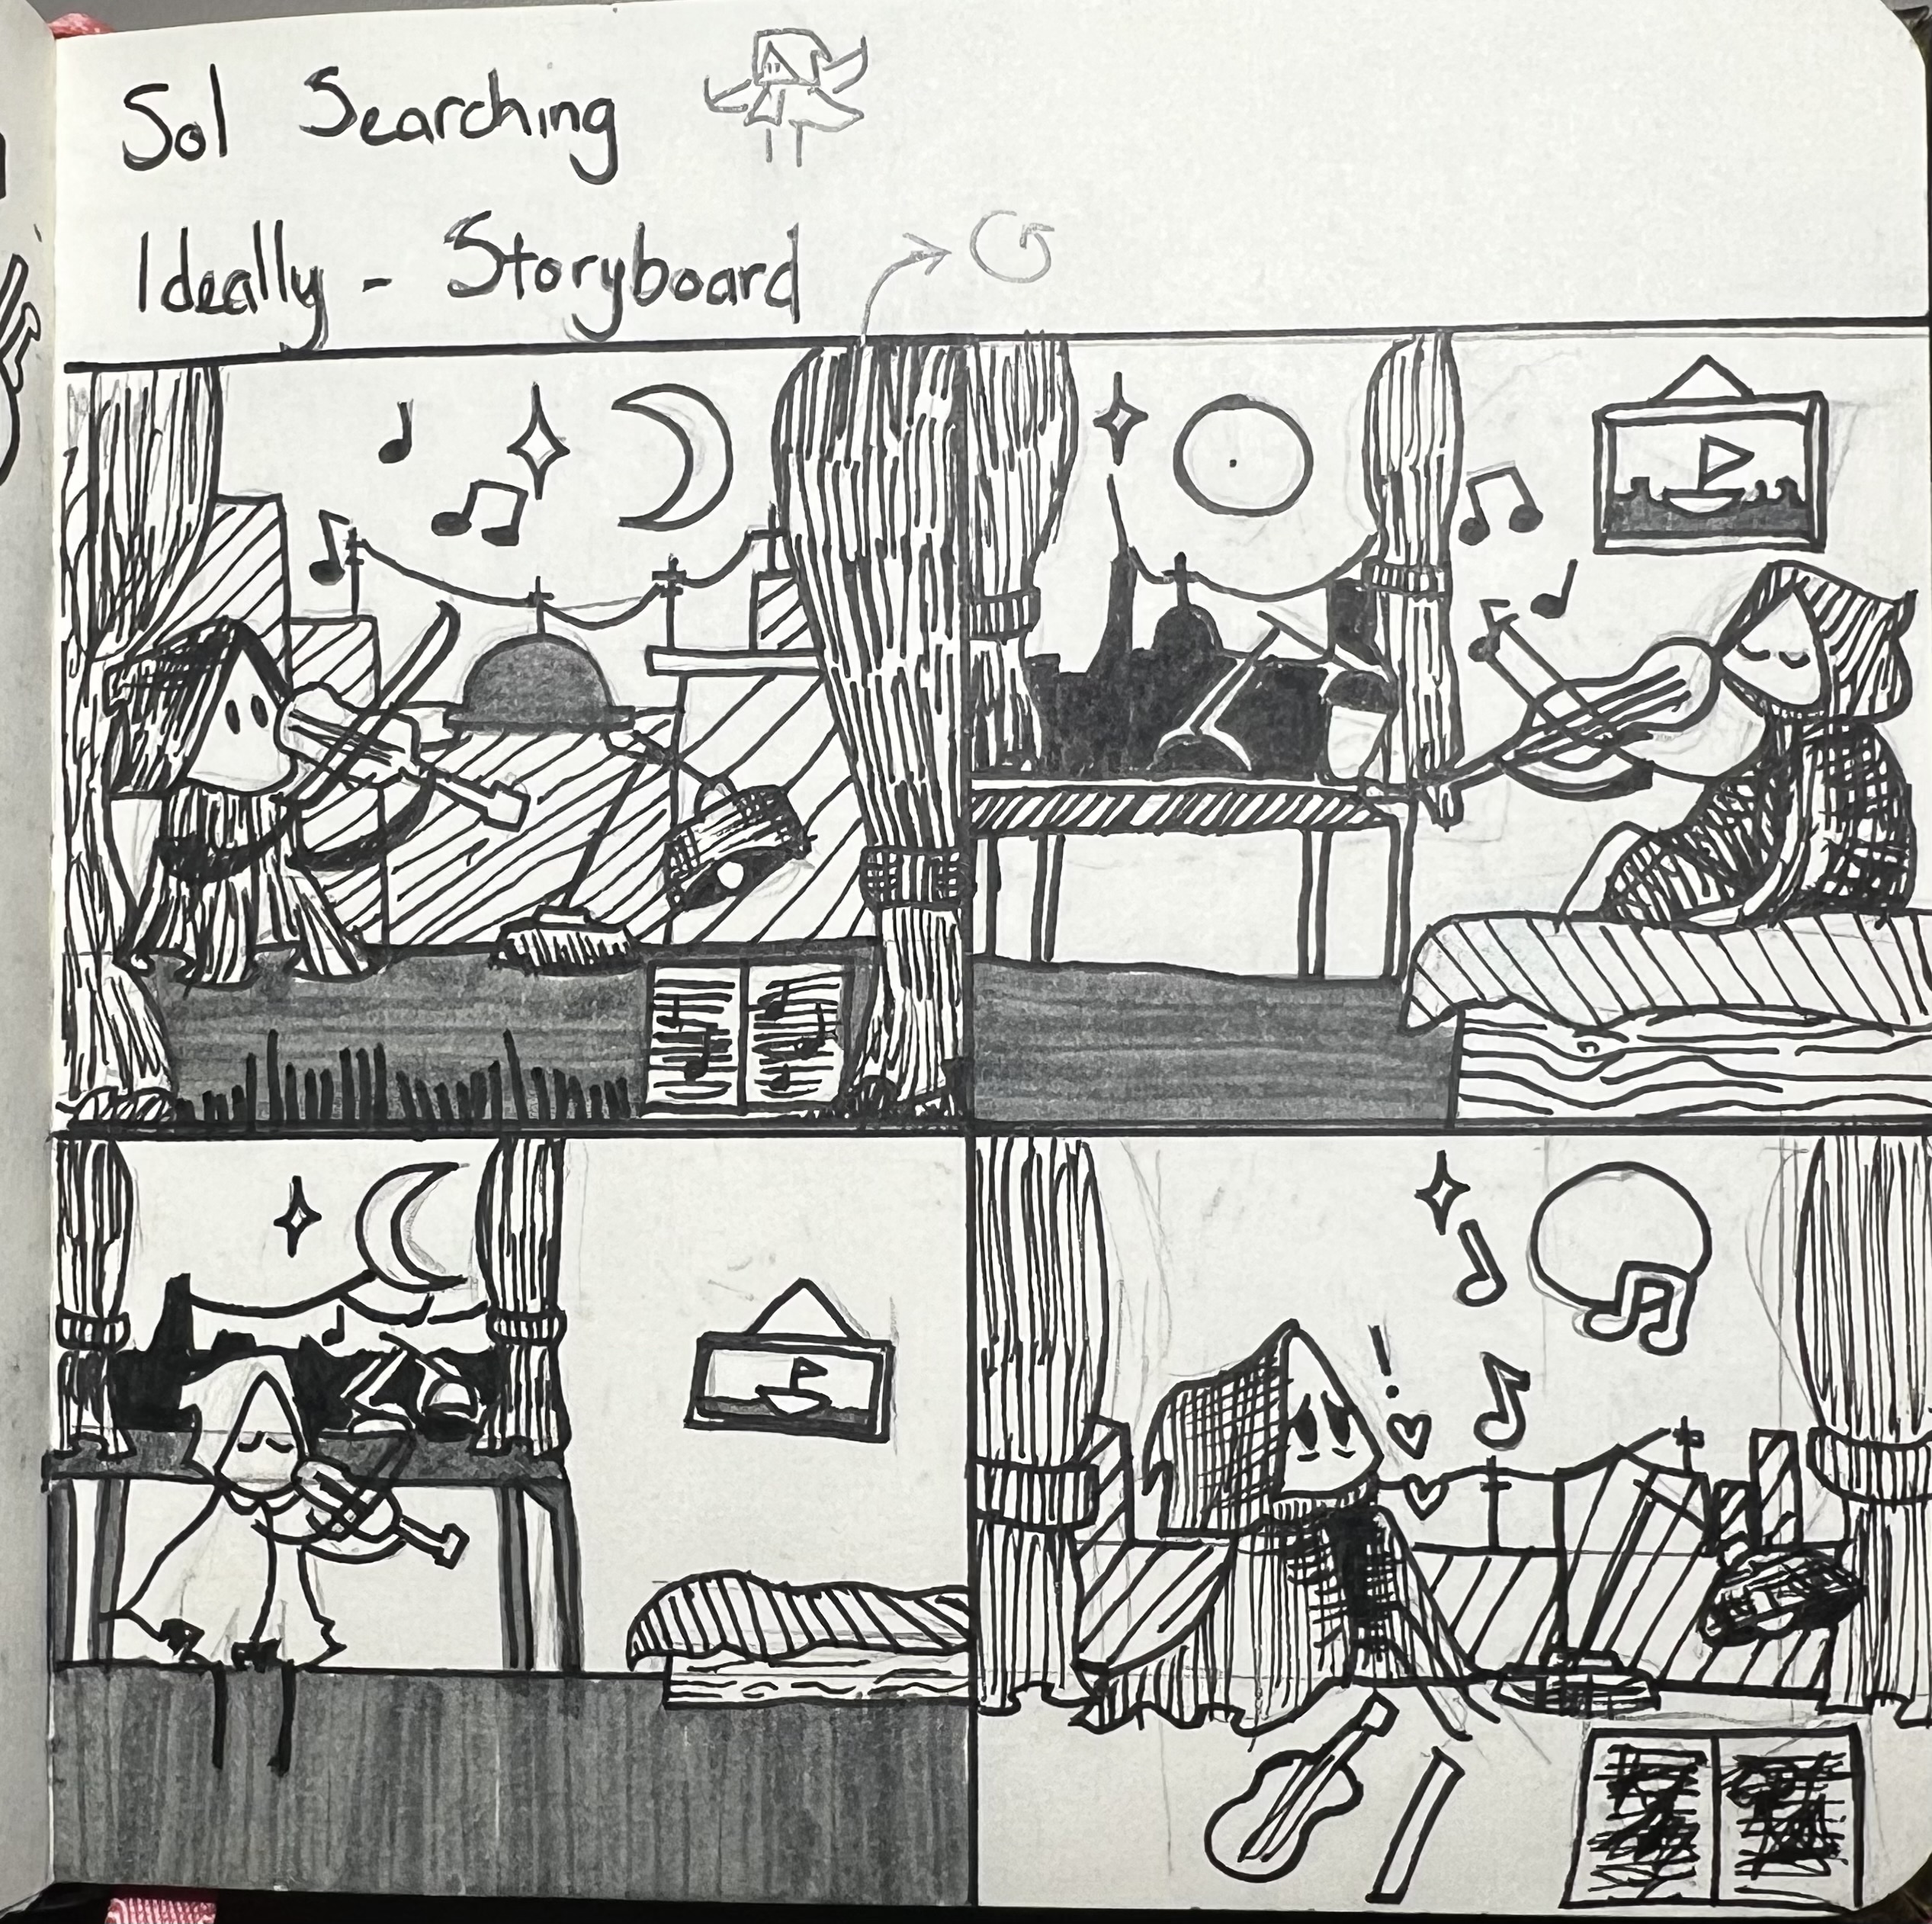 Sol Searching
Ideally - Storyboard
!